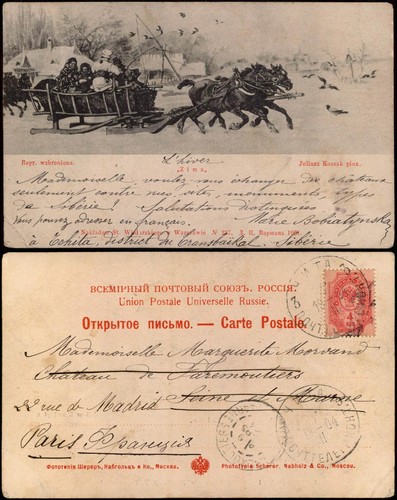 Repr. wzbroniona.
L'hiver
Zima.
Juliusz Kossak pinx.
Mademoiselle voulez vous échanger des
seulement contre mes vues, monuments, types
de Sibérie! Salutations distinguées
Vous pouvez adresser en français. Marie
à Tchita, district du Transbaikal. Sibérie
ВСЕМІРНЫЙ ПОЧТОВЫЙ СОЮЗЪ. РОССІЯ.
Union Postale Universelle Russie.
Открытое письмо. — Carte Postale
Mademoiselle Marguerite Morvand
Chateau de Faremoutiers
Seine et Marne
22 rue de Madrid
Paris Франція
Фототипія Шереръ, Набгольцъ и Ко., Москва.
Phototypie Scherer, Nabholz & Co., Moscou.